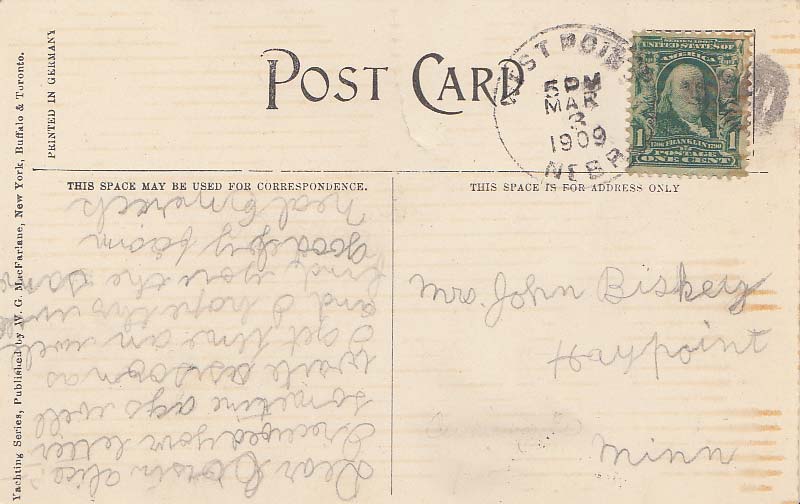 POST CARD
PRINTED IN GERMANY
Yachting Series, Published by W. G. MacFarlane, New York, Buffalo & Toronto.
WEST POINT
5 PM
MAR
3
1909
NEBR
SERIES 1902
UNITED STATES OF
AMERICA
1 1
1706 FRANKLIN 1790
POSTAGE
ONE CENT
THIS SPACE MAY BE USED FOR CORRESPONDENCE.
THIS SPACE IS FOR ADDRESS ONLY
Dear Cousin alice
I received your letter
sometime ago will
write as soon as
I get time am well
and I hope this will
find you the same
goodby from
Neal
Mrs. John Biskey
Haypoint
Minn